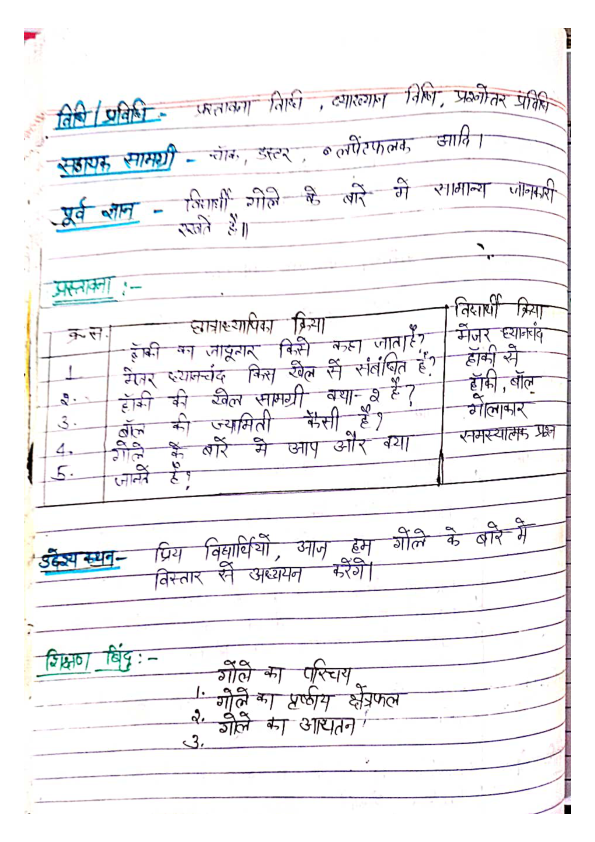 विधि / प्रविधि - प्रस्तावना विधि, व्याख्यान विधि, प्रश्नोतर प्रविधि
सहायक सामग्री - चॉक, डस्टर, लपेटफलक आदि।
पूर्व ज्ञान - विद्यार्थी गोले के बारें में सामान्य जानकारी
रखते है॥
प्रस्तावना :-
क्र.स. छात्राध्यापिका क्रिया विद्यार्थी क्रिया
1 हॉकी का जादूगार किसे कहा जाता है? मेजर ध्यानचंद
2. मेजर ध्यानचंद किस खेल से संबंधित है? हॉकी से
3. हॉकी की खेल सामग्री क्या-2 है? हॉकी, बॉल
4. बॉल की ज्यामिती कैसी है? गोलाकार
5. गोले के बारें मे आप और क्या समस्यात्मक प्रश्न
जानते है?
उद्देश्य कथन- प्रिय विद्यार्थियों, आज हम गोंले के बारे में
विस्तार से अध्ययन करेंगे।
शिक्षण बिंदु :-
1. गोंले का परिचय
2. गोले का पृष्ठीय क्षेत्रफल
3. गोले का आयतन